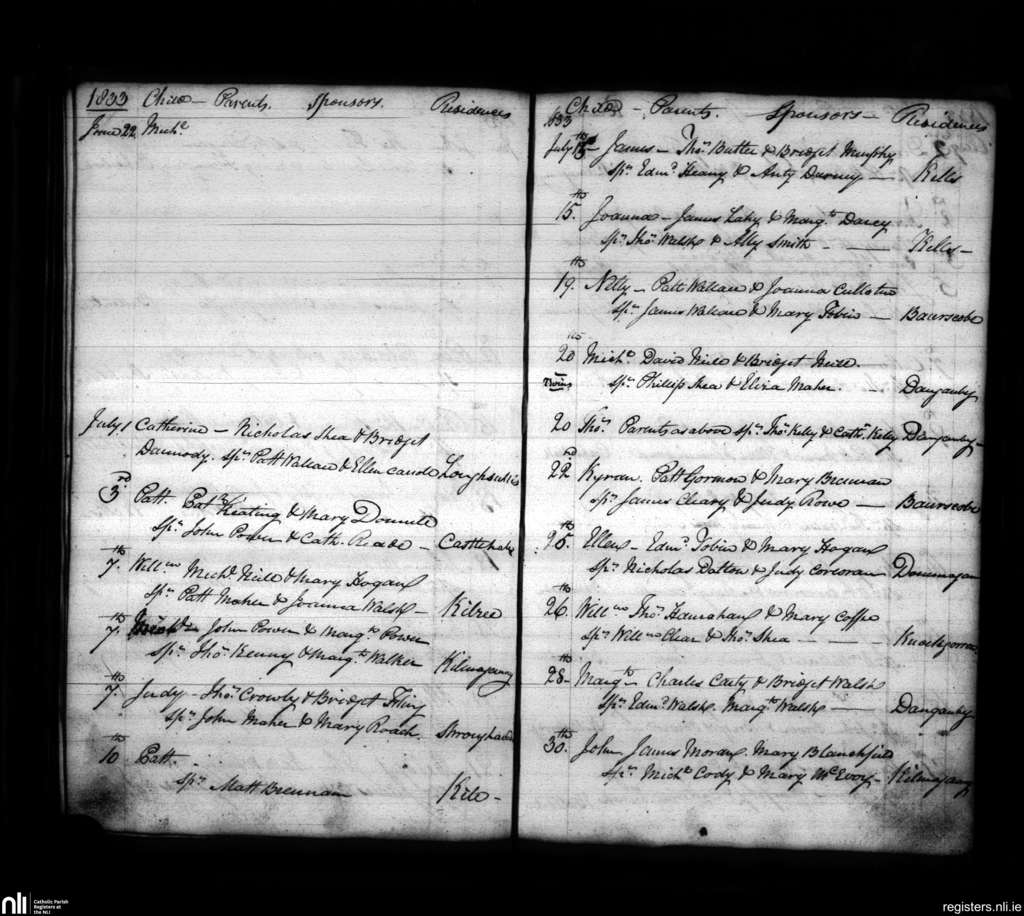 1833 Child - Parents. Sponsors. Residences
June 22 Michl
July 1 Catherine - Nicholas Shea & Bridget
Dannody. spn Patt Wallace & Ellen Loughsullis
3rd Patt. Patk Keating & Mary
spn John Power & Cath. Reade -
7th Willm Michl Neile & Mary Hogan
spn Patt Maher & Joanna Walsh - Kilree
7th John Power & Margt Power
spn Thos Kenny & Margt Walker Kilmaganny
7th Judy - Thos Crowly & Bridget
spn John Maher & Mary Roach.
10th Patt.
spn Matt Brennan
1833 Child - Parents. Sponsors - Residences
July James - Thos Butler & Bridget Murphy
spn Edmd Heany & Anty - Kells
15th Joanna - James Lahy & Margt Darcy
spn Thos Walsh & Ally Smith - Kells -
19th Nelly - Patt Wallace & Joanna
spn James Wallace & Mary Tobin - Baurscobe
20th Michl David Neile & Bridget Neill.
Twins spn Phillip Shea & Eliza Maher. - Danganby
20 Thos Parents as above spn Thos Kelly & Cath. Kelly Danganby -
22nd Kyran. Patt Gorman & Mary Brennan
spn James Cleary & Judy Rowe - Baurscobe
25th Ellen - Edmd Tobin & Mary Hogan
spn Nicholas Dalton & Judy Corcoran
26th Willm Thos Hanrahan & Mary
spn Willm Clear & Thos Shea -
28th Margt - Charles Carty & Bridget Walsh
spn Edmd Walsh. Margt Walsh - Danganby
30th John James Moran. Mary Blanchfield
spn Michl Cody & Mary McEvoy - Kilmaganny
nli Catholic Parish
Registers at
the NLI
registers.nli.ie